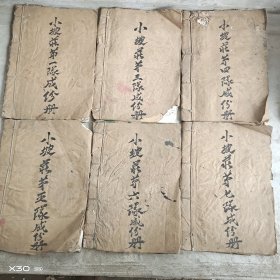 小坡莊第一隊成份册
小坡莊第三隊成份册
小坡莊第四隊成份册
小坡莊第五隊成份册
小坡莊第六隊成份册
小坡莊第七隊成份册
X30